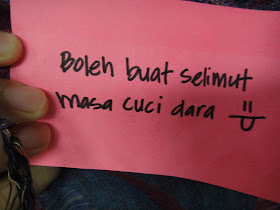 Boleh buat selimut
masa cuci dara =D